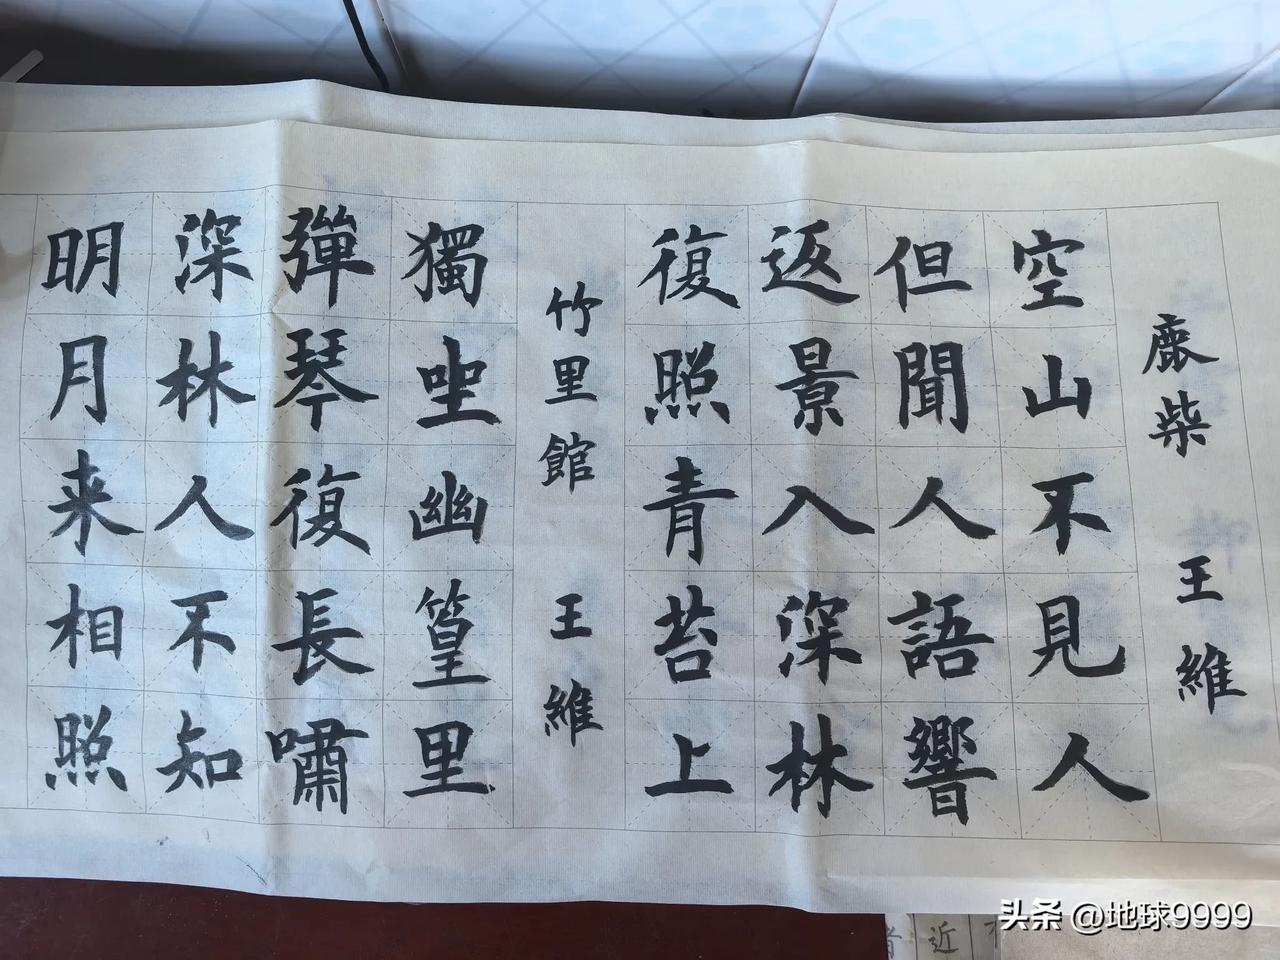 鹿柴 王維
空山不見人
但聞人語響
返景入深林
復照青苔上
竹里館 王維
獨坐幽篁里
彈琴復長嘯
深林人不知
明月来相照
头条 @地球9999
近